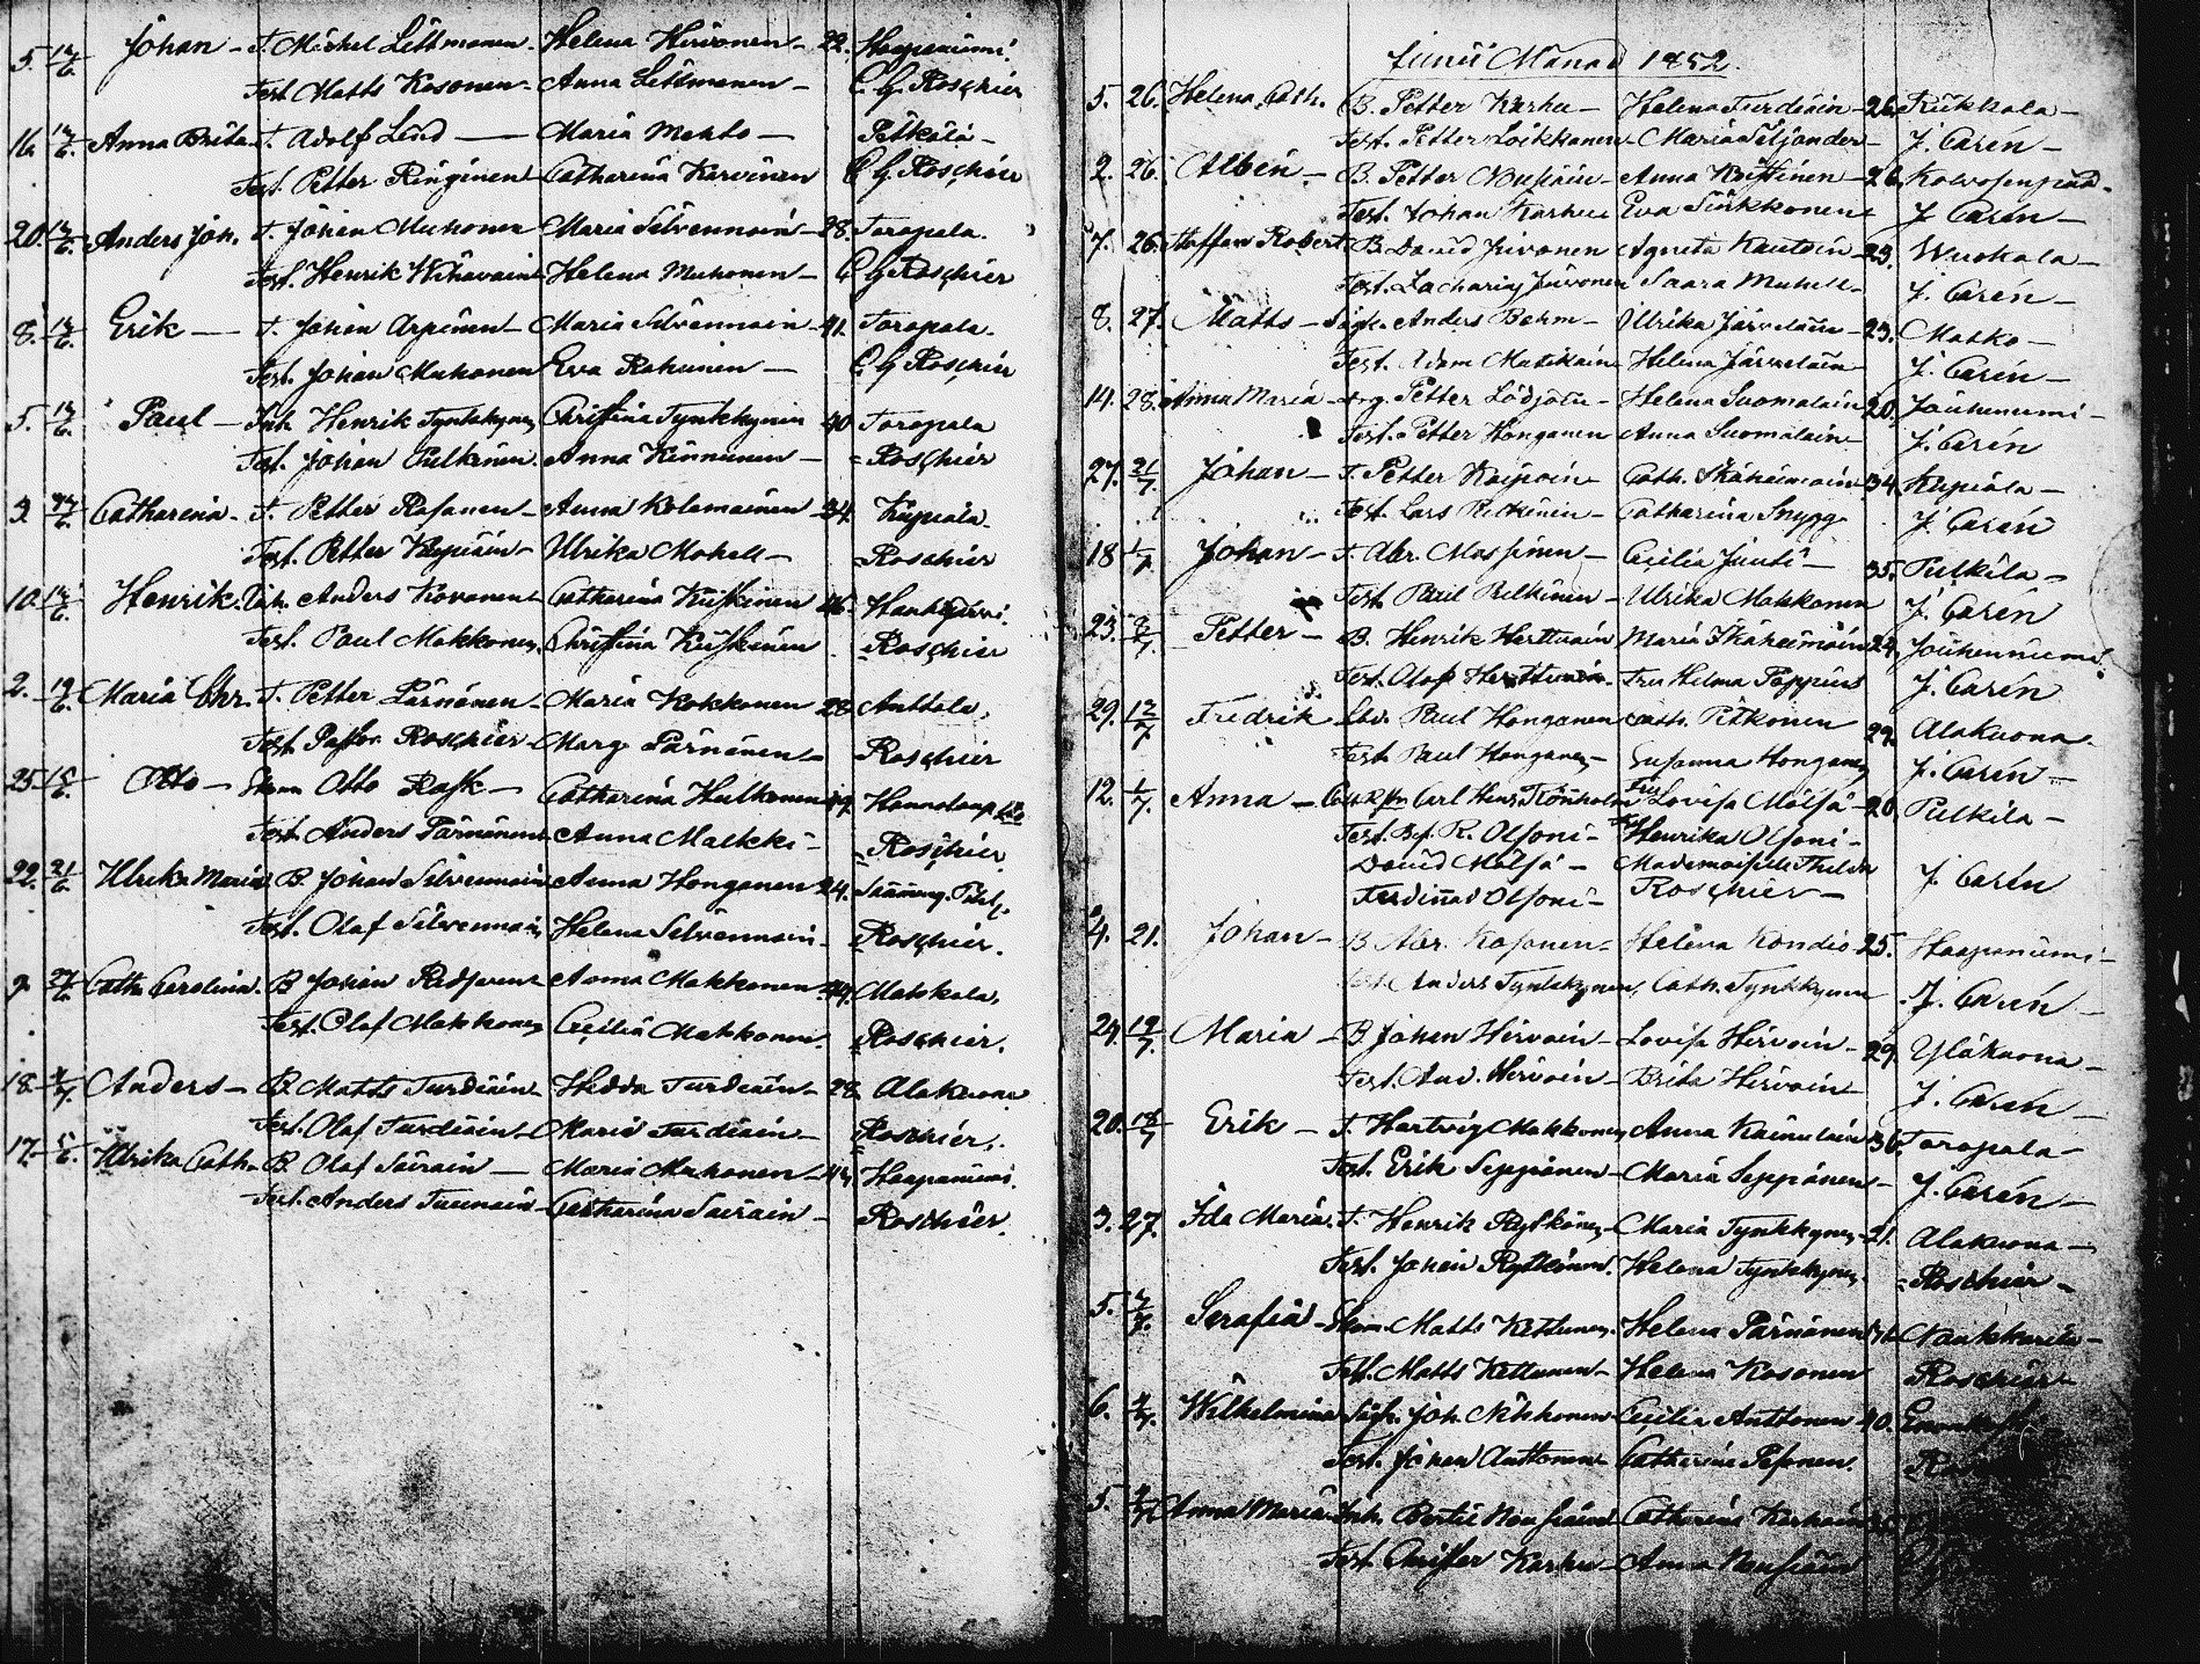 5. 12/6. Johan – T. Michel Littmanen – Helena Hirvonen – 22. Haapaniemi.
Test. Matts Kosonen – Anna Littmanen – C. G. Roschier
16. 12/6. Anna Brita – T. Adolf Lind – Maria Mähtö – Pelkälä –
Test. Petter Ringinen – Catharina Karvinen C. G. Roschier
20. 12/6. Anders Joh. T. Johan Muhonen Maria Silvennoin – 28. Toropala.
Test. Henrik Wihavain Helena Muhonen – C. G. Roschier
8. 12/6. Erik – T. Johan Arpinen – Maria Silvennoin – 41. Toropala.
Test. Johan Muhonen Eva Rahunen – C. G. Roschier
5. 12/6. Paul – Inh. Henrik Tynkkynen Christina Tynkkynen 40 Toropala
Test. Johan Pulkinen. Anna Kinnunen – = Roschier
3. Catharina – T. Petter Rasanen – Anna Kolemainen – 34. Kupiala –
Test. Petter Kupiain – Ulrika Mohell – = Roschier
10. 12/6. Henrik. Inh. Anders Kovanen – Catharina Kuiskinen 46. Hauki järvi.
Test. Paul Makkonen. Christina Kuiskinen = Roschier
2. 19/6. Maria Chr. T. Petter Pärnänen – Maria Kokkonen 28 Anttola.
Test. Pastor Roschier – Marg. Pärnänen – Roschier
25. 15/6. Otto – Otto Rask – Catharina Hulkonen
Test. Anders Pärnänen – Anna Malkki – = Roschier
22. 21/6. Ulrika Maria B. Johan Silvennoin Anna Honganen 24.
Test. Olaf Silvennoin, Helena Silvennoin – = Roschier.
9. 27/6. Cath. Carolina. B. Johan Anna Makkonen 44. Makkola.
Test. Olaf Makkonen Cecilia Makkonen. = Roschier.
18. Anders – B. Matts Turdiain – Hedda Turdiain – 28 Alakuona
Test. Olaf Turdiain – Maria Turdiain – = Roschier.
17. Ulrika Cath. B. Olaf Sairain – Maria Muhonen – 44 Haapaniemi.
Test. Anders Tuunain – Catharina Sairain – = Roschier.
Junii Månad 1852.
5. 26. Helena Cath. B. Petter Karhu – Helena Turdiain – 26. Rukkala –
Test. Petter Loikkanen – Maria Siljander – J. Carén –
2. 26. Albin – B. Petter Nousiain – Anna Kristinen – 26.
Test. Johan Karhu Eva Sinkkonen – J. Carén –
7. 26. Staffan Robert B. David Juvonen Agneta Kautoin – 23. Wuokala –
Test. Zacharias Juvonen Saara Muhell – J. Carén –
8. 27. Matts – Anders Behm – Ulrika Järveläin – 23. Matko –
Test. Adam Matikain Helena Järveläin J. Carén –
14. 28. Anna Maria – Petter Lödjöin – Helena Suomalain 20. Jouhenniemi –
Test. Petter Honganen Anna Suomalain – J. Carén
27. 21/7. Johan – T. Petter Kupiain Cath. Ikäheimoin 34. Kupiala –
Test. Lars Pulkinen – Catharina Snygg J. Carén
18 1/7 Johan – T. Abr. Massinen – Cecilia Juuti – 35. Pulkila –
Test. Paul Pulkinen – Ulrika Makkonen J. Carén
23. 8/7. Petter – B. Henrik Herttuain Maria Ikäheimoin 24. Jouhenniemi.
Test. Olof Herttuain – Fru Helma Poppius J. Carén
29. 12/7 Fredrik Paul Honganen Cath. Pitkonen 29. Alakuona –
Test. Paul Honganen – Susanna Honganen J. Carén –
12. 1/7. Anna – Carl Henr. Rönnholm Fru Lovisa Mölsä – 20. Pulkila –
Test. R. Olsoni – Henrika Olsoni –
David Mölsä – Mademoiselle Thilda
Ferdinad Olsoni – Roschier – J. Carén
4. 21. Johan – B. Abr. Kosonen – Helena Kondio – 25. Haapaniemi –
Test. Anders Tynkkynen, Cath. Tynkkynen J. Carén –
24. 19/7. Maria – B. Johan Hirvoin – Lovisa Hirvoin – 29. Yläkuona –
Test. And. Hirvoin – Brita Hirvoin – J. Carén –
20. 18/7 Erik – T. Hartvig Makkonen Anna Kainulain 36. Toropala –
Test. Erik Seppänen – Maria Seppänen – J. Carén –
3. 27. Ida Maria. T. Henrik Rytkönen – Maria Tynkkynen – 21. Alakuona –
Test. Johan Rytkönen. Helena Tynkkynen. = Roschier –
5. Serafia – Matts Kettunen. Helena Pärnänen
Test. Matts Kettunen – Helena Kosonen Roschier
6. Wilhelmina Joh. Nikkonen – Cecilia Anttonen 40.
Test. Johan Anttonen – Catharina Pesonen.
5. Anna Maria Inh. Bertil Nousiain – Catharina Karhuin
Test. Christer Karhu – Anna Nousiain